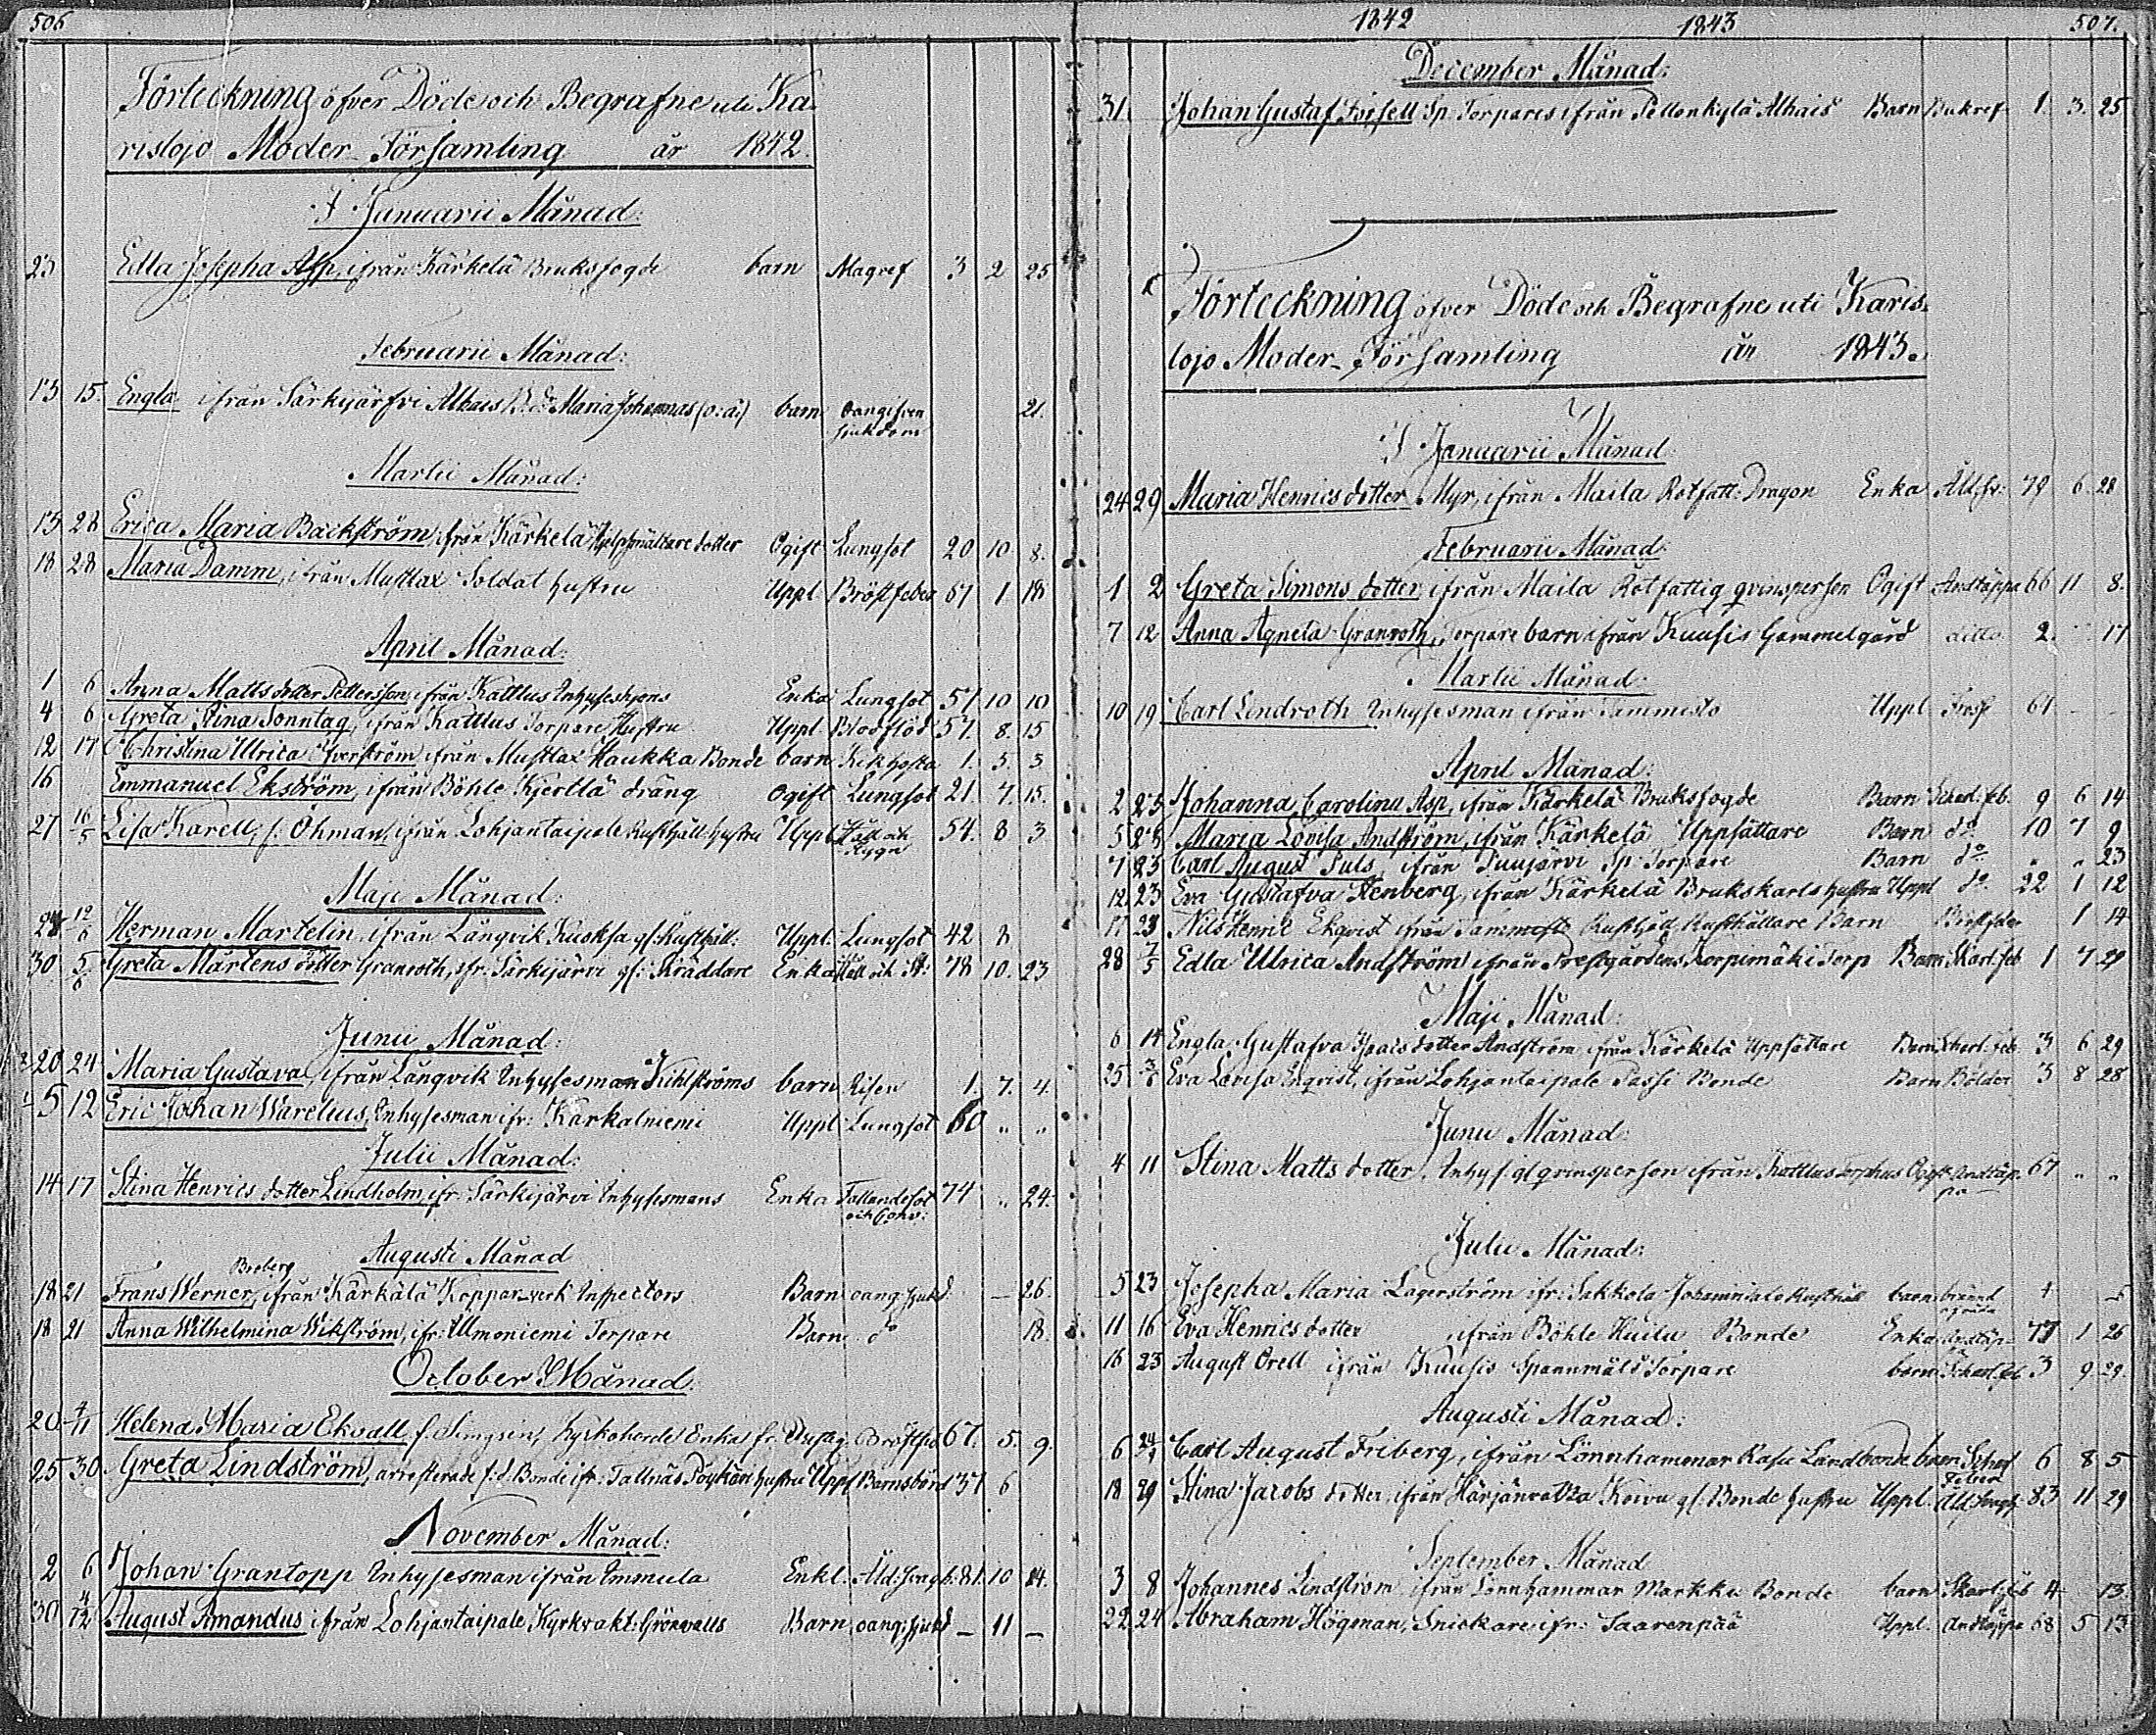 506
Förteckning öfver Döde och Begrafne uti Ka-
rislojo Moder-Församling år 1842.
I Januarii Månad:
23 Edla Josepha Asp, ifrån Kärkelä Bruksfogde barn Magref 3 2 25
Februarii Månad:
13 15. Engla ifrån Särkijärfvi Alhais Maria Johannas (o: ä:) barn oangifven sjukdom 21.
Martii Månad:
13 28 Erica Maria Backström, ifrån Kärkelä dotter Ogift Lungsot 20 10 8.
18 28 Maria Damm, ifrån Mustlax Soldat hustru Uppl Bröstfeber 61 1 18
April Månad:
1 6 Anna Matts dotter Pettersson, ifrån Kattlus Inhyseshjons Enka Lungsot 51 10 10
4 6 Greta Stina Sonntag, ifrån Kattlus Torpare Hustru Uppl Blodflöd 57. 8. 15
12 17 Christina Ulrica Öfverström, ifrån Mustlax Haukka Bonde barn Kikhosta 1. 5. 3.
16 Emmanuel Ekström, ifrån Böhle Kjerttä dräng Ogift Lungsot 21. 7. 15.
27 16/5 Lisa Karell, f. Öhman, ifrån Lohjantaipale Rusthåll hustru Uppl Håll och Rygv 54. 8 3
Maji Månad:
24 12/6 Herman Martelin ifrån Långvik Kuoksa gl: Rusthåll: Uppl. Lungsot 42 8
30 5/6 Greta Mårtens dotter Granroth, ifr: Särkijärvi gl: Skräddare Enka Håll och St: 78 10. 23
Junii Månad:
20 24 Maria Gustava, ifrån Långvik Inhysesman Kihlströms barn Risen 1. 7. 4.
5 12 Eric Johan Warelius, Inhysesman ifr: Karkalniemi Uppl Lungsot 60 „ „
Julii Månad:
14 17 Stina Henrics dotter Lindholm, ifr: Särkijärvi Inhysesmans Enka Fallandesot och Conv: 74 „ 24.
Augusti Månad
Broberg
18 21 Frans Werner, ifrån Kärkälä Koppar-verk Inspectors Barn oang: sjukd. — 26.
18 21 Anna Wilhelmina Wikström, ifr: Ulmoniemi Torpare Barn d:o 18.
October Månad:
20 4/11 Helena Maria Ekvall, f. Simysin, Kyrkoherde Enka fr. Bröstfe 67. 5. 9.
25 30 Greta Lindström, arresterade f. d. Bonde ifr: Tallnäs Pöykäri hustru Uppl Barnsbörd 37 6
November Månad:
2 6 Johan Grantopp Inhysesman ifrån Immula Enkl. Åld: svagh. 81. 10 14.
30 4/12 August Amandus ifrån Lohjantaipale Kyrkvakt: Grönvalls Barn oang: sjukd — 11 —
1842 1843 507.
December Månad:
31. Johan Gustaf Forsell Sp. Torpares ifrån Pellonkylä Alhais Barn Bukref 1. 3. 25
Förteckning öfver Döde och Begrafne uti Karis-
lojo Moder-Församling år 1843.
I Januarii Månad
24 29 Maria Henrics dotter Myr, ifrån Maila Rotfatt: Dragon Enka Åld: sv: 79 6 28
Februarii Månad:
1 2 Greta Simons dotter, ifrån Maila Rotfattig qvinsperson Ogift Andtäppa 66 11 8.
7 12 Anna Agneta Granroth, Torpare barn ifrån Kuusis Gammelgård ditto 2. „ 17
Martii Månad:
10 19 Carl Lindroth Inhysesman ifrån Tammisto Uppl 61 – –
April Månad:
2 23 Johanna Carolina Asp, ifrån Kärkelä Bruksfogde Barn Scharl. feb. 9 6 14
5 23 Maria Lovisa Andström, ifrån Kärkelä Uppsättare Barn d:o 10 7 9
7 23 Carl August Puls, ifrån Puujärvi Sp. Torpare Barn d:o „ „ 23
12 23 Eva Gustafva Stenberg, ifrån Kärkelä Brukskarls hustru Uppl d:o 22 1 12
17 23 Nils Henric Ekqvist ifrån Tammisto Rusthåll Rusthållare Barn Bröstfeber 1 14
28 7/5 Edla Ulrica Andström ifrån Prestgårdens Korpimäki Torp Barn Skarl. feb 1 7 29
Maji Månad:
6 14 Engla Gustafva Isaics dotter Andström, ifrån Kärkelä Uppsättare Barn Scharl. feb. 3 6 29
25 Eva Lovisa Enqvist, ifrån Lohjantaipale Passi Bonde Barn Bölder 3 8 28
Junii Månad:
4 11 Stina Matts dotter, Inhys. gl qvinsperson ifrån Kattlus Torphus Ogift Andtäp- pa 67 „ „
Julii Månad:
5 23 Josepha Maria Lagerström ifr: Sakkola Johannisdals Rusthåll barn bränd 4 – 5
11 16 Eva Henrics dotter ifrån Böhle Huilu Bonde Enka Andtäp- 77 1 26
16 23 August Orell ifrån Kuusis Spannmåls Torpare barn Scharl. feb 3 9 29.
Augusti Månad:
6 Carl August Friberg, ifrån Lönnhammar Kasu Landbonde barn Scharl Feber 6 8 5
18 29 Stina Jacobs dotter, ifrån Härjänvatza Koivu gl. Bonde hustru Uppl. Åld. svagh. 83 11 29
September Månad
3 8 Johannes Lindström, ifrån Lönnhammar Markku Bonde barn Skarl. feb 4 13.
22 24 Abraham Högman, Snickare ifr: Saarenpää Uppl. Andtäppa 68 5 13